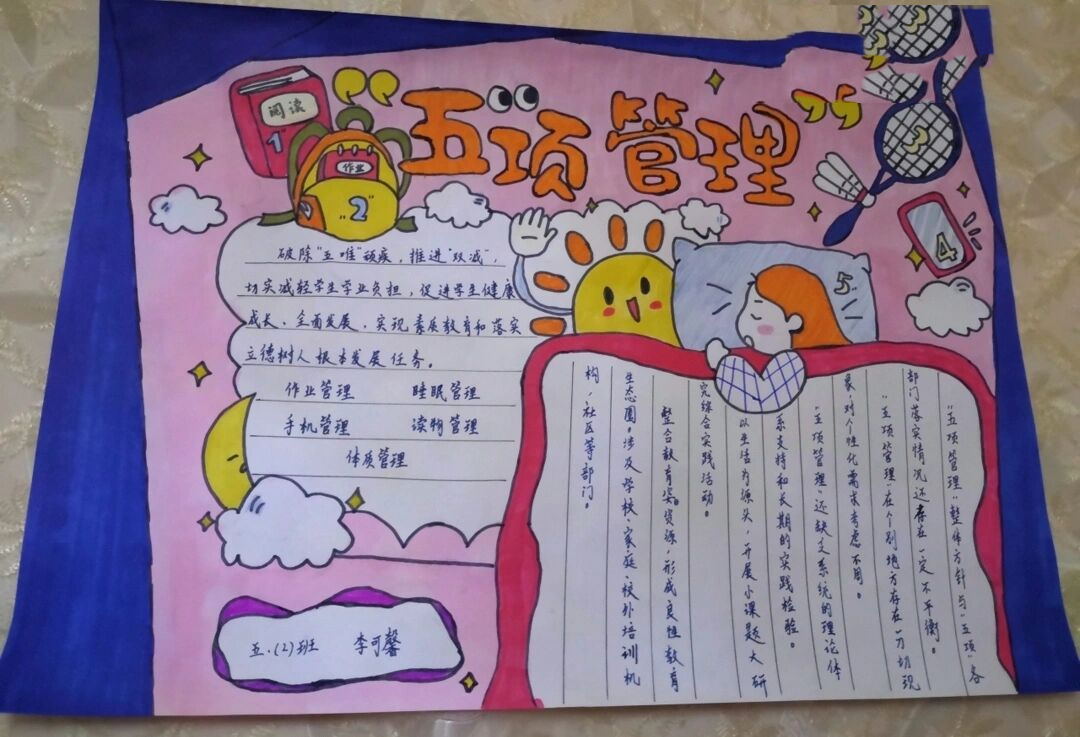 阅读
1
作业
2
“五项管理”
3
4
5
破除“五唯”顽疾，推进“双减”，
切实减轻学生学业负担，促进学生健康
成长、全面发展，实现素质教育和落实
立德树人根本发展任务。
作业管理 睡眠管理
手机管理 读物管理
体质管理
“五项管理”整体方针与“五项”各
部门落实情况还存在一定不平衡。
“五项管理”在个别地方存在一刀切现
象，对个性化需求考虑不周。
“五项管理”还缺乏系统的理论体
系支持和长期的实践检验。
以生活为源头，开展小课题大研
究综合实践活动。
整合教育资源，形成良性教育
生态圈。涉及学校、家庭、校外培训机
构，社区等部门。
五.(2)班 李可馨